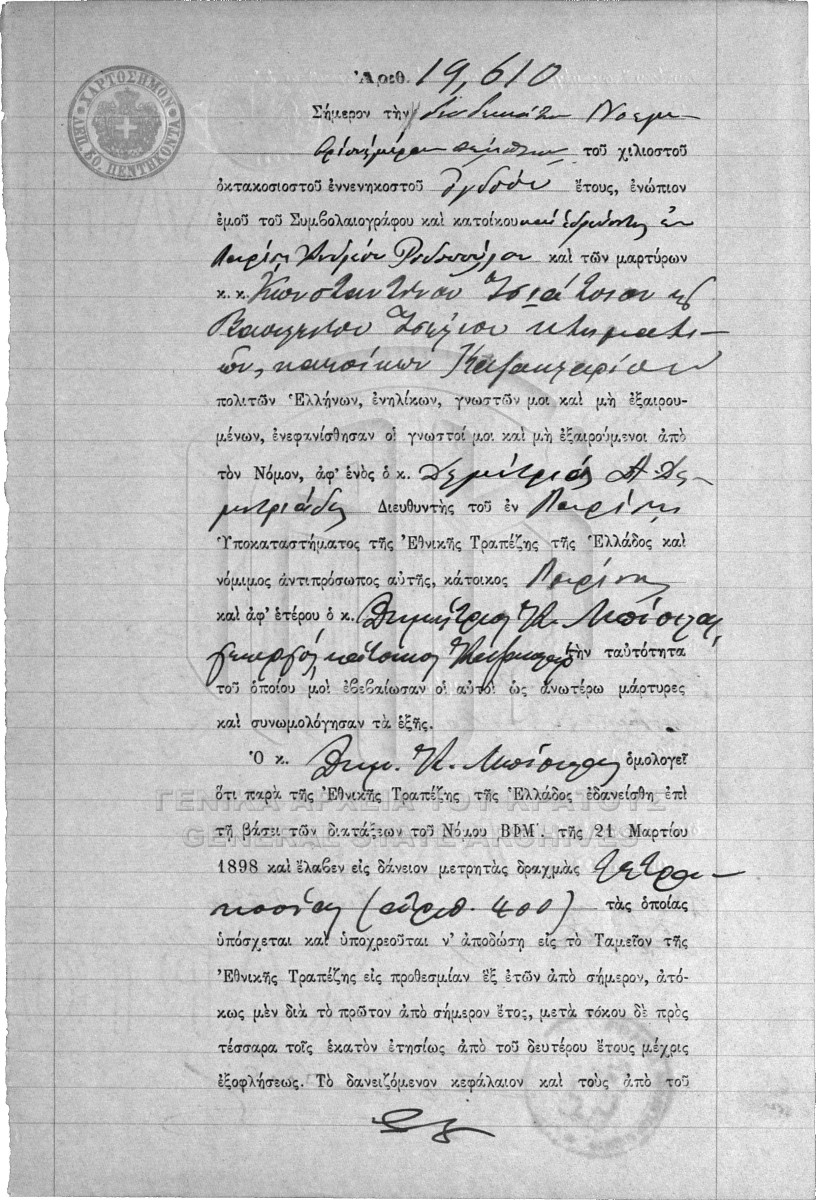 ΧΑΡΤΟΣΗΜΟΝ
ΛΕΠΤΩΝ ΠΕΝΤΗΚΟΝΤΑ
Ἀριθ. 19,610
Σήμερον τὴν δωδεκάτην Νοεμ-
βρίου ἡμέραν πέμπτην τοῦ χιλιοστοῦ
ὀκτακοσιοστοῦ ἐννενηκοστοῦ ὀγδόου ἔτους, ἐνώπιον
ἐμοῦ τοῦ Συμβολαιογράφου καὶ κατοίκου καὶ ἑδρεύοντος ἐν
Λαρίσῃ Ἀνδρέου Ροδοπούλου καὶ τῶν μαρτύρων
κ. κ. Κωνσταντίνου
κτηματι-
ῶν, κατοίκων Καζακλαρίου
πολιτῶν Ἑλλήνων, ἐνηλίκων, γνωστῶν μοι καὶ μὴ ἐξαιρου-
μένων, ἐνεφανίσθησαν οἱ γνωστοί μοι καὶ μὴ ἐξαιρούμενοι ἀπὸ
τὸν Νόμον, ἀφ' ἑνὸς ὁ κ. Δημήτριος Α. Δη-
μητριάδης Διευθυντὴς τοῦ ἐν Λαρίσῃ
Ὑποκαταστήματος τῆς Ἐθνικῆς Τραπέζης τῆς Ἑλλάδος καὶ
νόμιμος ἀντιπρόσωπος αὐτῆς, κάτοικος Λαρίσης
καὶ ἀφ' ἑτέρου ὁ κ. Δημήτριος Κ.
γεωργός κάτοικος Καζακλάρ τὴν ταὐτότητα
τοῦ ὁποίου μοὶ ἐβεβαίωσαν οἱ αὐτοὶ ὡς ἀνωτέρω μάρτυρες
καὶ συνωμολόγησαν τὰ ἑξῆς.
Ὁ κ. Δημ. Κ. ὁμολογεῖ
ὅτι παρὰ τῆς Ἐθνικῆς Τραπέζης τῆς Ἑλλάδος ἐδανείσθη ἐπὶ
τῇ βάσει τῶν διατάξεων τοῦ Νόμου ΒΦΜ΄. τῆς 21 Μαρτίου
1898 καὶ ἔλαβεν εἰς δάνειον μετρητὰς δραχμὰς τετρα-
κοσίας (ἀριθ. 400) τὰς ὁποίας
ὑπόσχεται καὶ ὑποχρεοῦται ν' ἀποδώσῃ εἰς τὸ Ταμεῖον τῆς
Ἐθνικῆς Τραπέζης εἰς προθεσμίαν ἓξ ἐτῶν ἀπὸ σήμερον, ἀτό-
κως μὲν διὰ τὸ πρῶτον ἀπὸ σήμερον ἔτος, μετὰ τόκου δὲ πρὸς
τέσσαρα τοῖς ἑκατὸν ἐτησίως ἀπὸ τοῦ δευτέρου ἔτους μέχρις
ἐξοφλήσεως. Τὸ δανειζόμενον κεφάλαιον καὶ τοὺς ἀπὸ τοῦ
ΓΕΝΙΚΑ ΑΡΧΕΙΑ ΤΟΥ ΚΡΑΤΟΥΣ
GENERAL STATE ARCHIVES